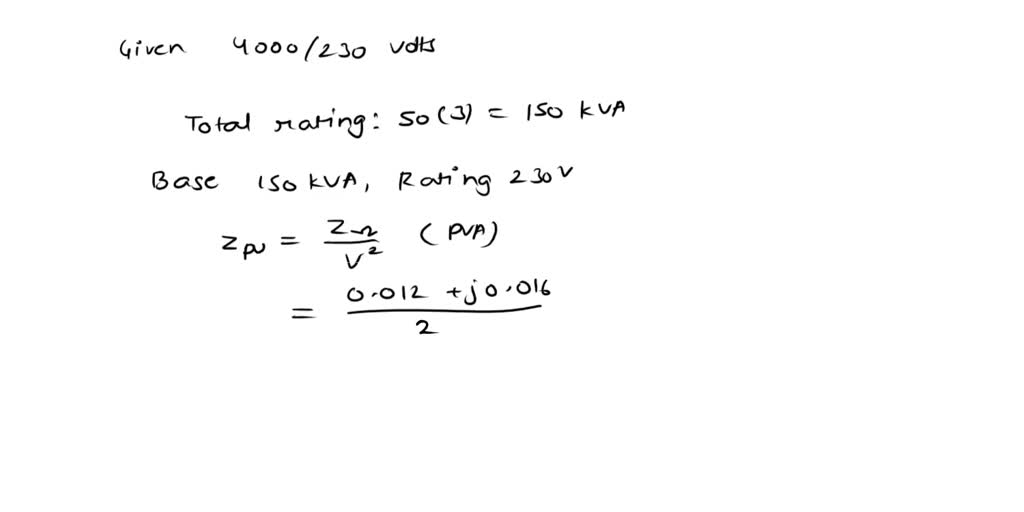 Given 4000/230 volts
Total rating: 50(3) = 150 kVA
Base 150 kVA, Rating 230 V
Zpu = ZΩ / V² (PVA)
= 0.012 + j0.016 / 2